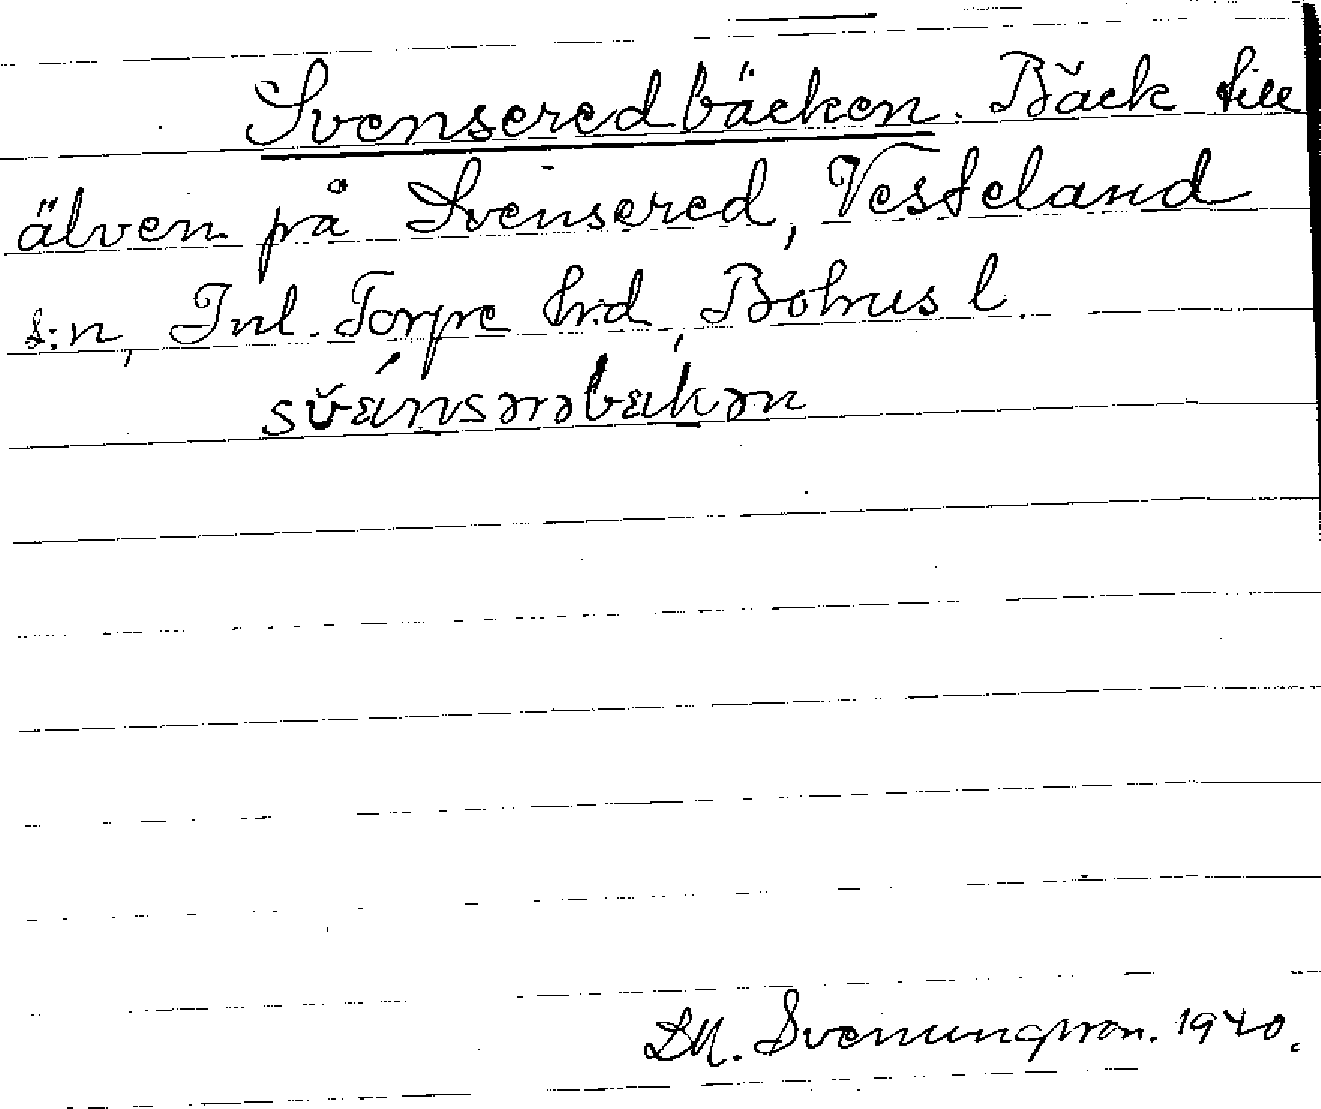 Svenseredbäcken. Bäck till
älven på Svensered, Vesteland
s:n, Inl. Torpe hrd, Bohus l.
svǽnsərəbækən
Svenungsson. 1940.